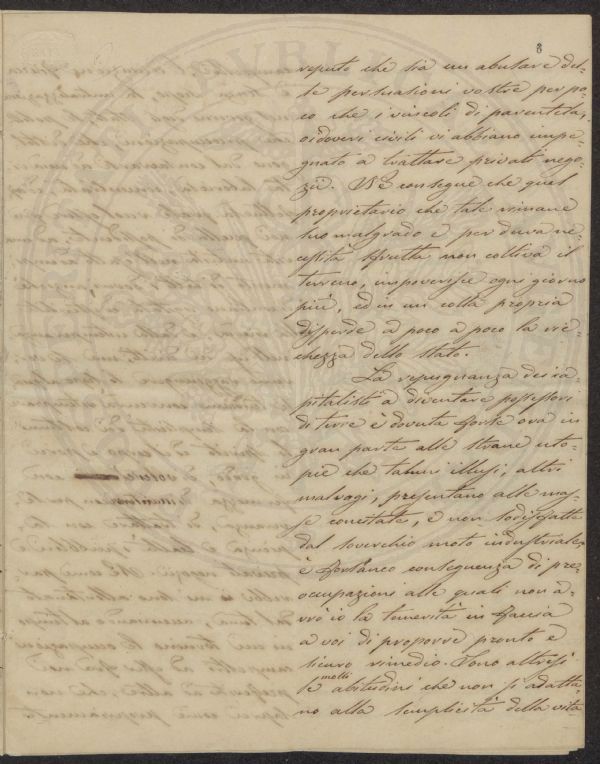 8
reputo che sia un abusare del-
le persuasioni vostre per po-
co che i vincoli di parentela,
o i doveri civili vi abbiano impe-
gnato a trattare privati nego-
zii. Ne consegue che quel
proprietario che tale rimane
suo malgrado e per dura ne-
cessità sfrutta non coltiva il
terreno, impoverisce ogni giorno
più, ed in un colla propria
disperde a poco a poco la ric-
chezza dello stato.
La repugnanza dei ca-
pitalisti a diventare possessori
di terre è dovuta forse ora in
gran parte alle strane uto-
pie che taluni illusi, altri
malvagi, presentano alle mas-
se concitate, e non sodisfatte
dal soverchio moto industriale
è consequenza di pre-
occupazioni alle quali non a-
vrò io la temerità in faccia
a voi di proporre pronto e
sicuro rimedio. Sono altresì
molti
le abitudini che non si adatta-
no alla semplicità della vita